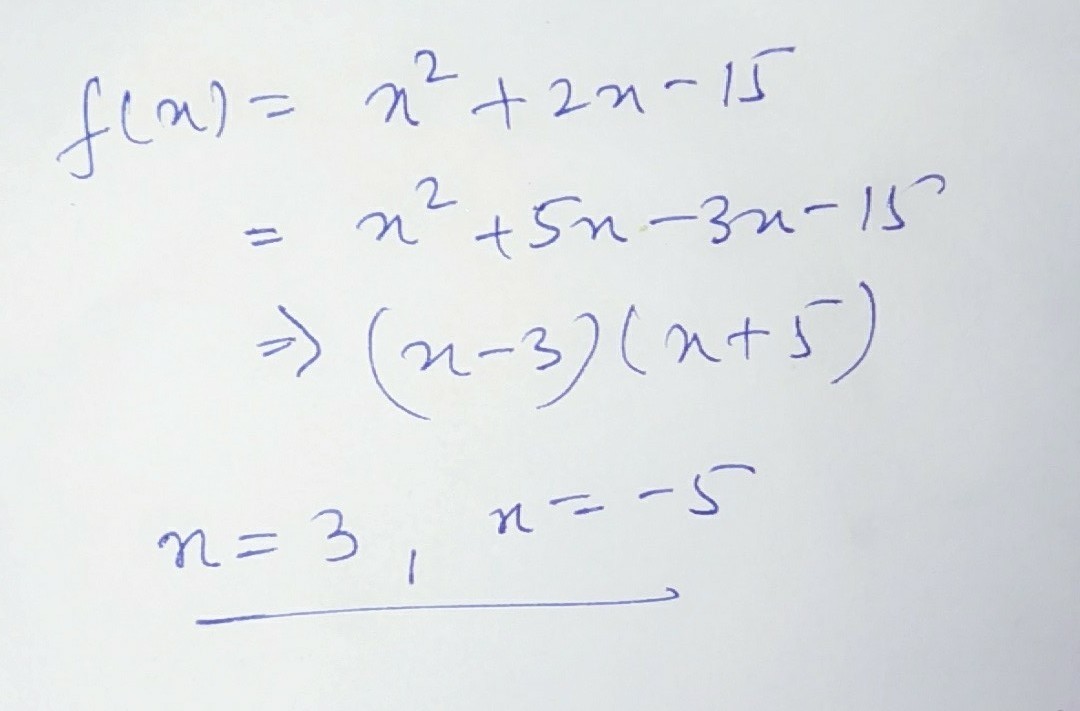 f(x) = x² + 2x - 15
= x² + 5x - 3x - 15
⇒ (x-3)(x+5)
x = 3, x = -5